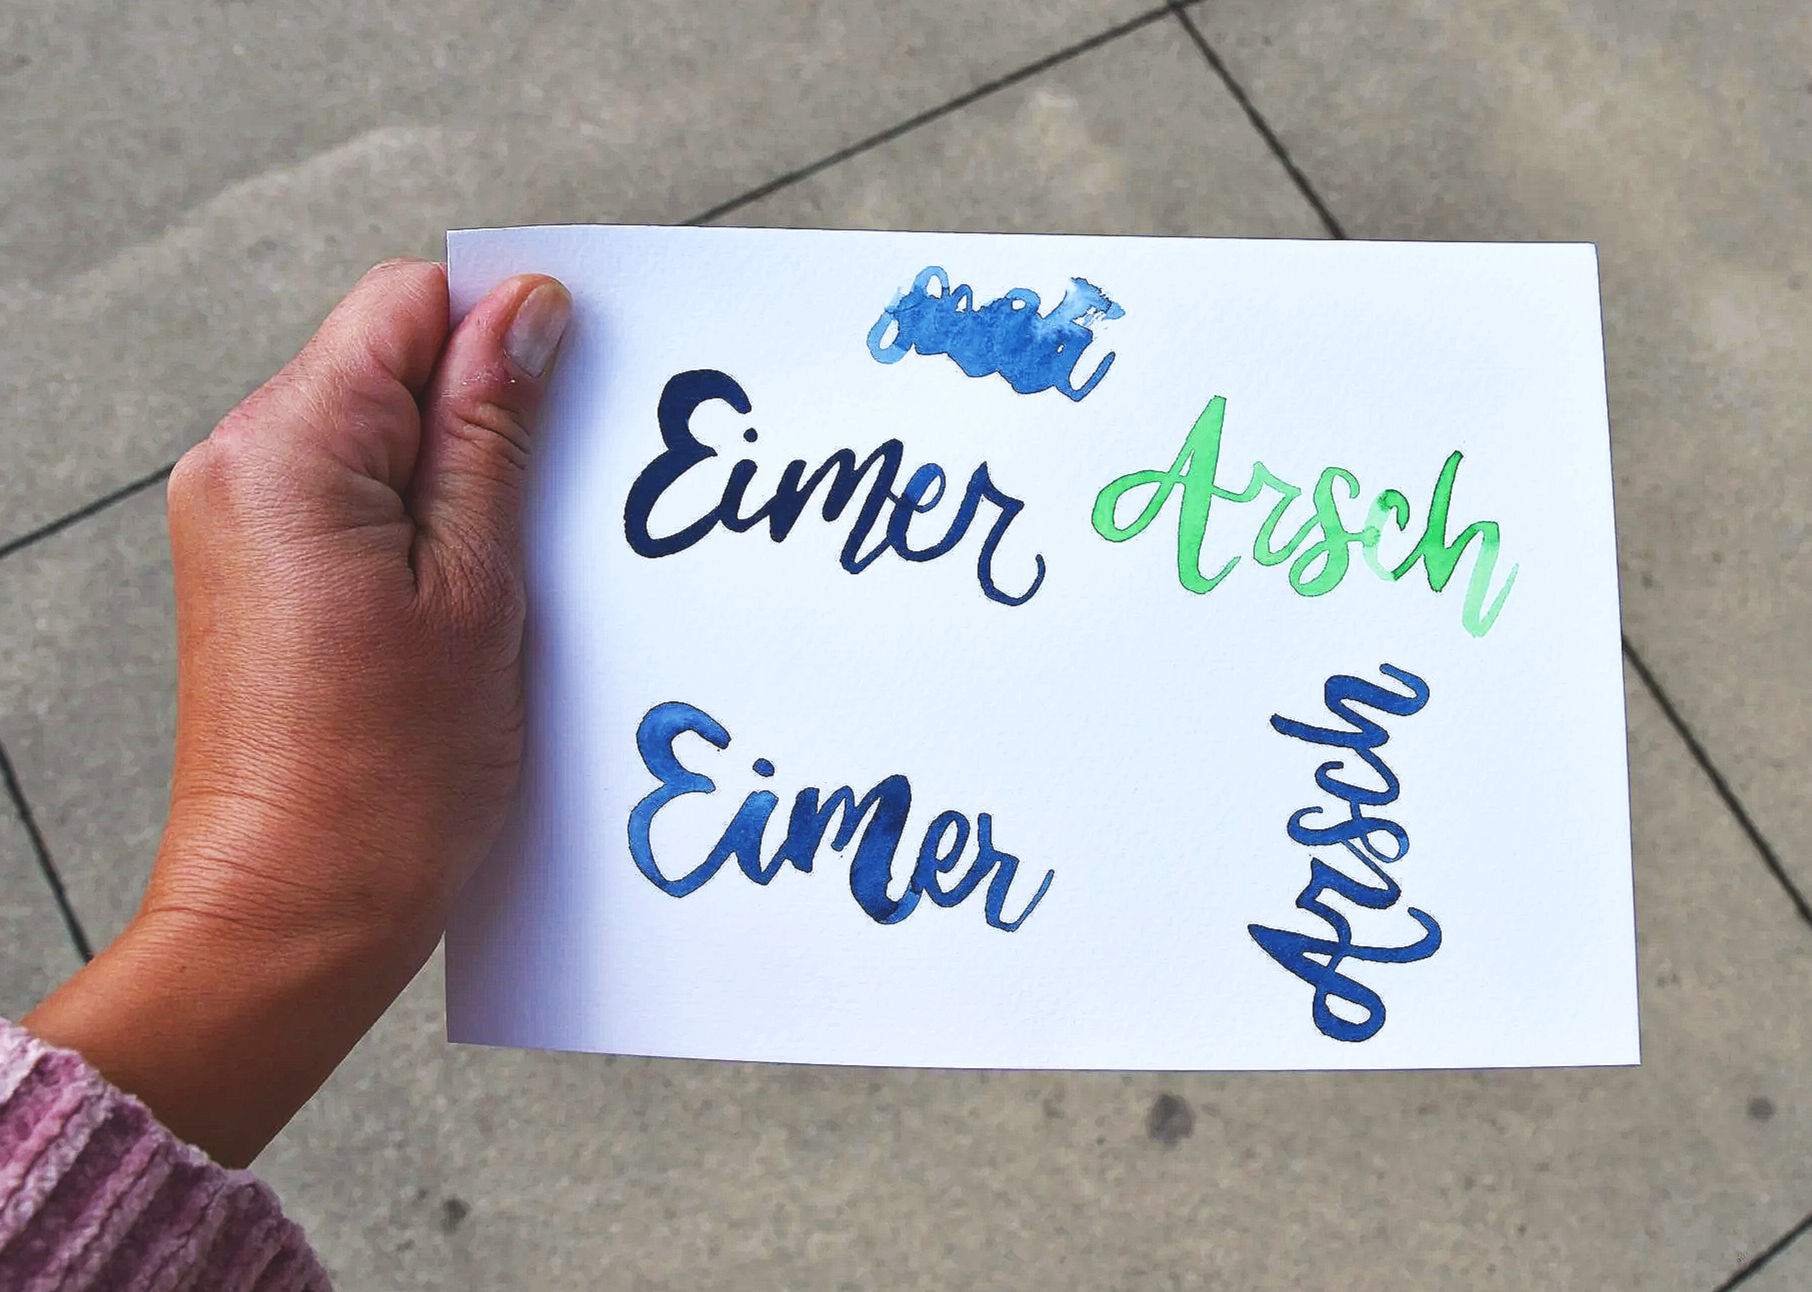 Eimer Arsch
Eimer
Arsch